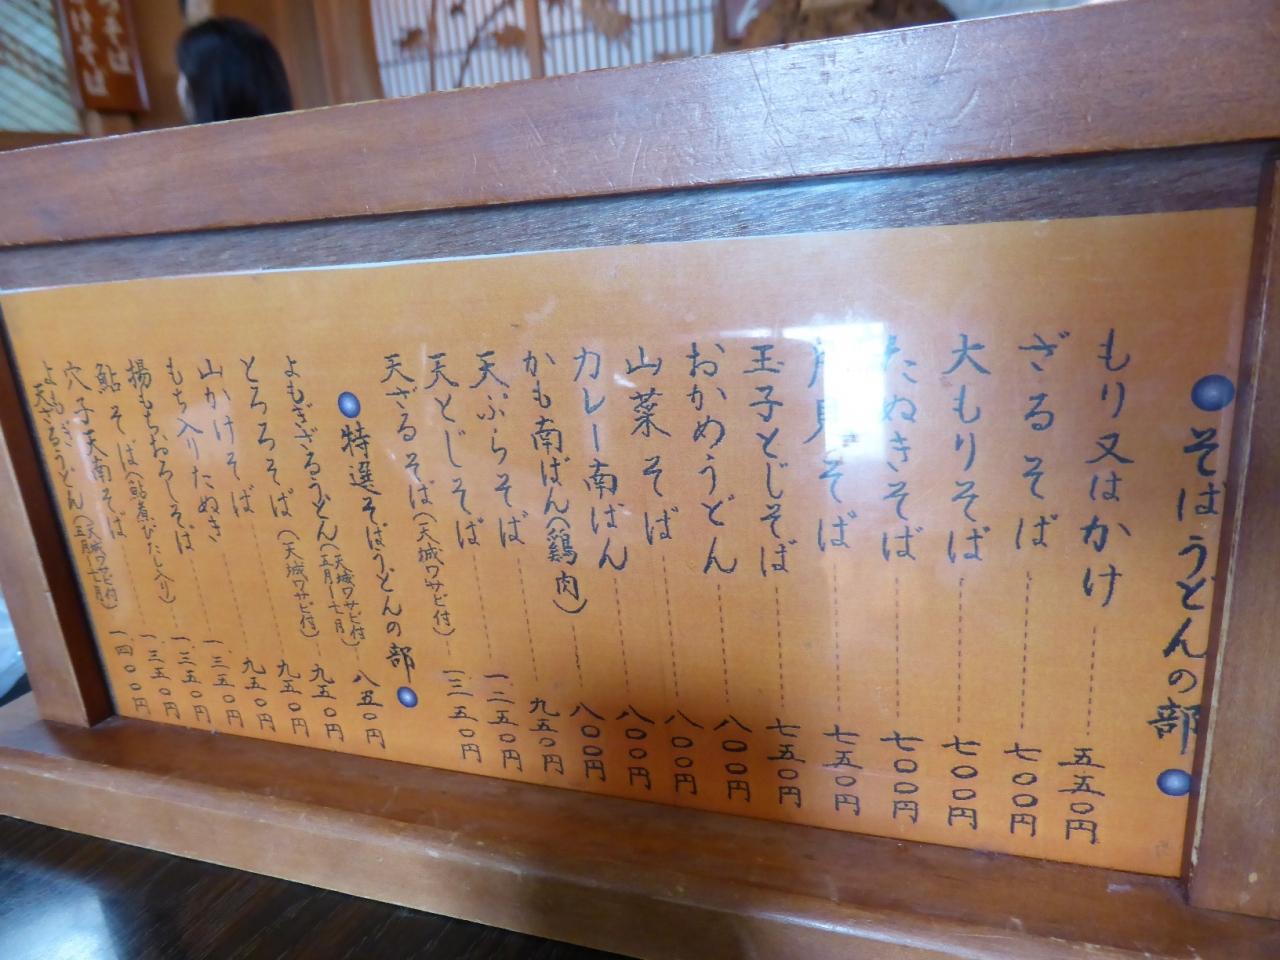 そばうどんの部
もり又はかけ 五五〇円
ざるそば 七〇〇円
大もりそば 七〇〇円
たぬきそば 七〇〇円
月見そば 七五〇円
玉子とじそば 七五〇円
おかめうどん 八〇〇円
山菜そば 八〇〇円
カレー南ばん 八〇〇円
かも南ばん(鶏肉) 八〇〇円
天ぷらそば 九五〇円
天とじそば 一、二五〇円
天ざるそば(天城ワサビ付) 一、三五〇円
特選そばうどんの部
よもぎざるうどん(天城ワサビ付 五月〜七月) 八五〇円
とろろそば(天城ワサビ付) 九五〇円
山かけそば 九五〇円
もち入りたぬき 九五〇円
揚もちおろしそば 一、三五〇円
鮎そば(鮎煮びたし入り) 一、三五〇円
穴子天南そば 一、三五〇円
よもぎ天ざるうどん(天城ワサビ付 五月〜七月) 一、四〇〇円